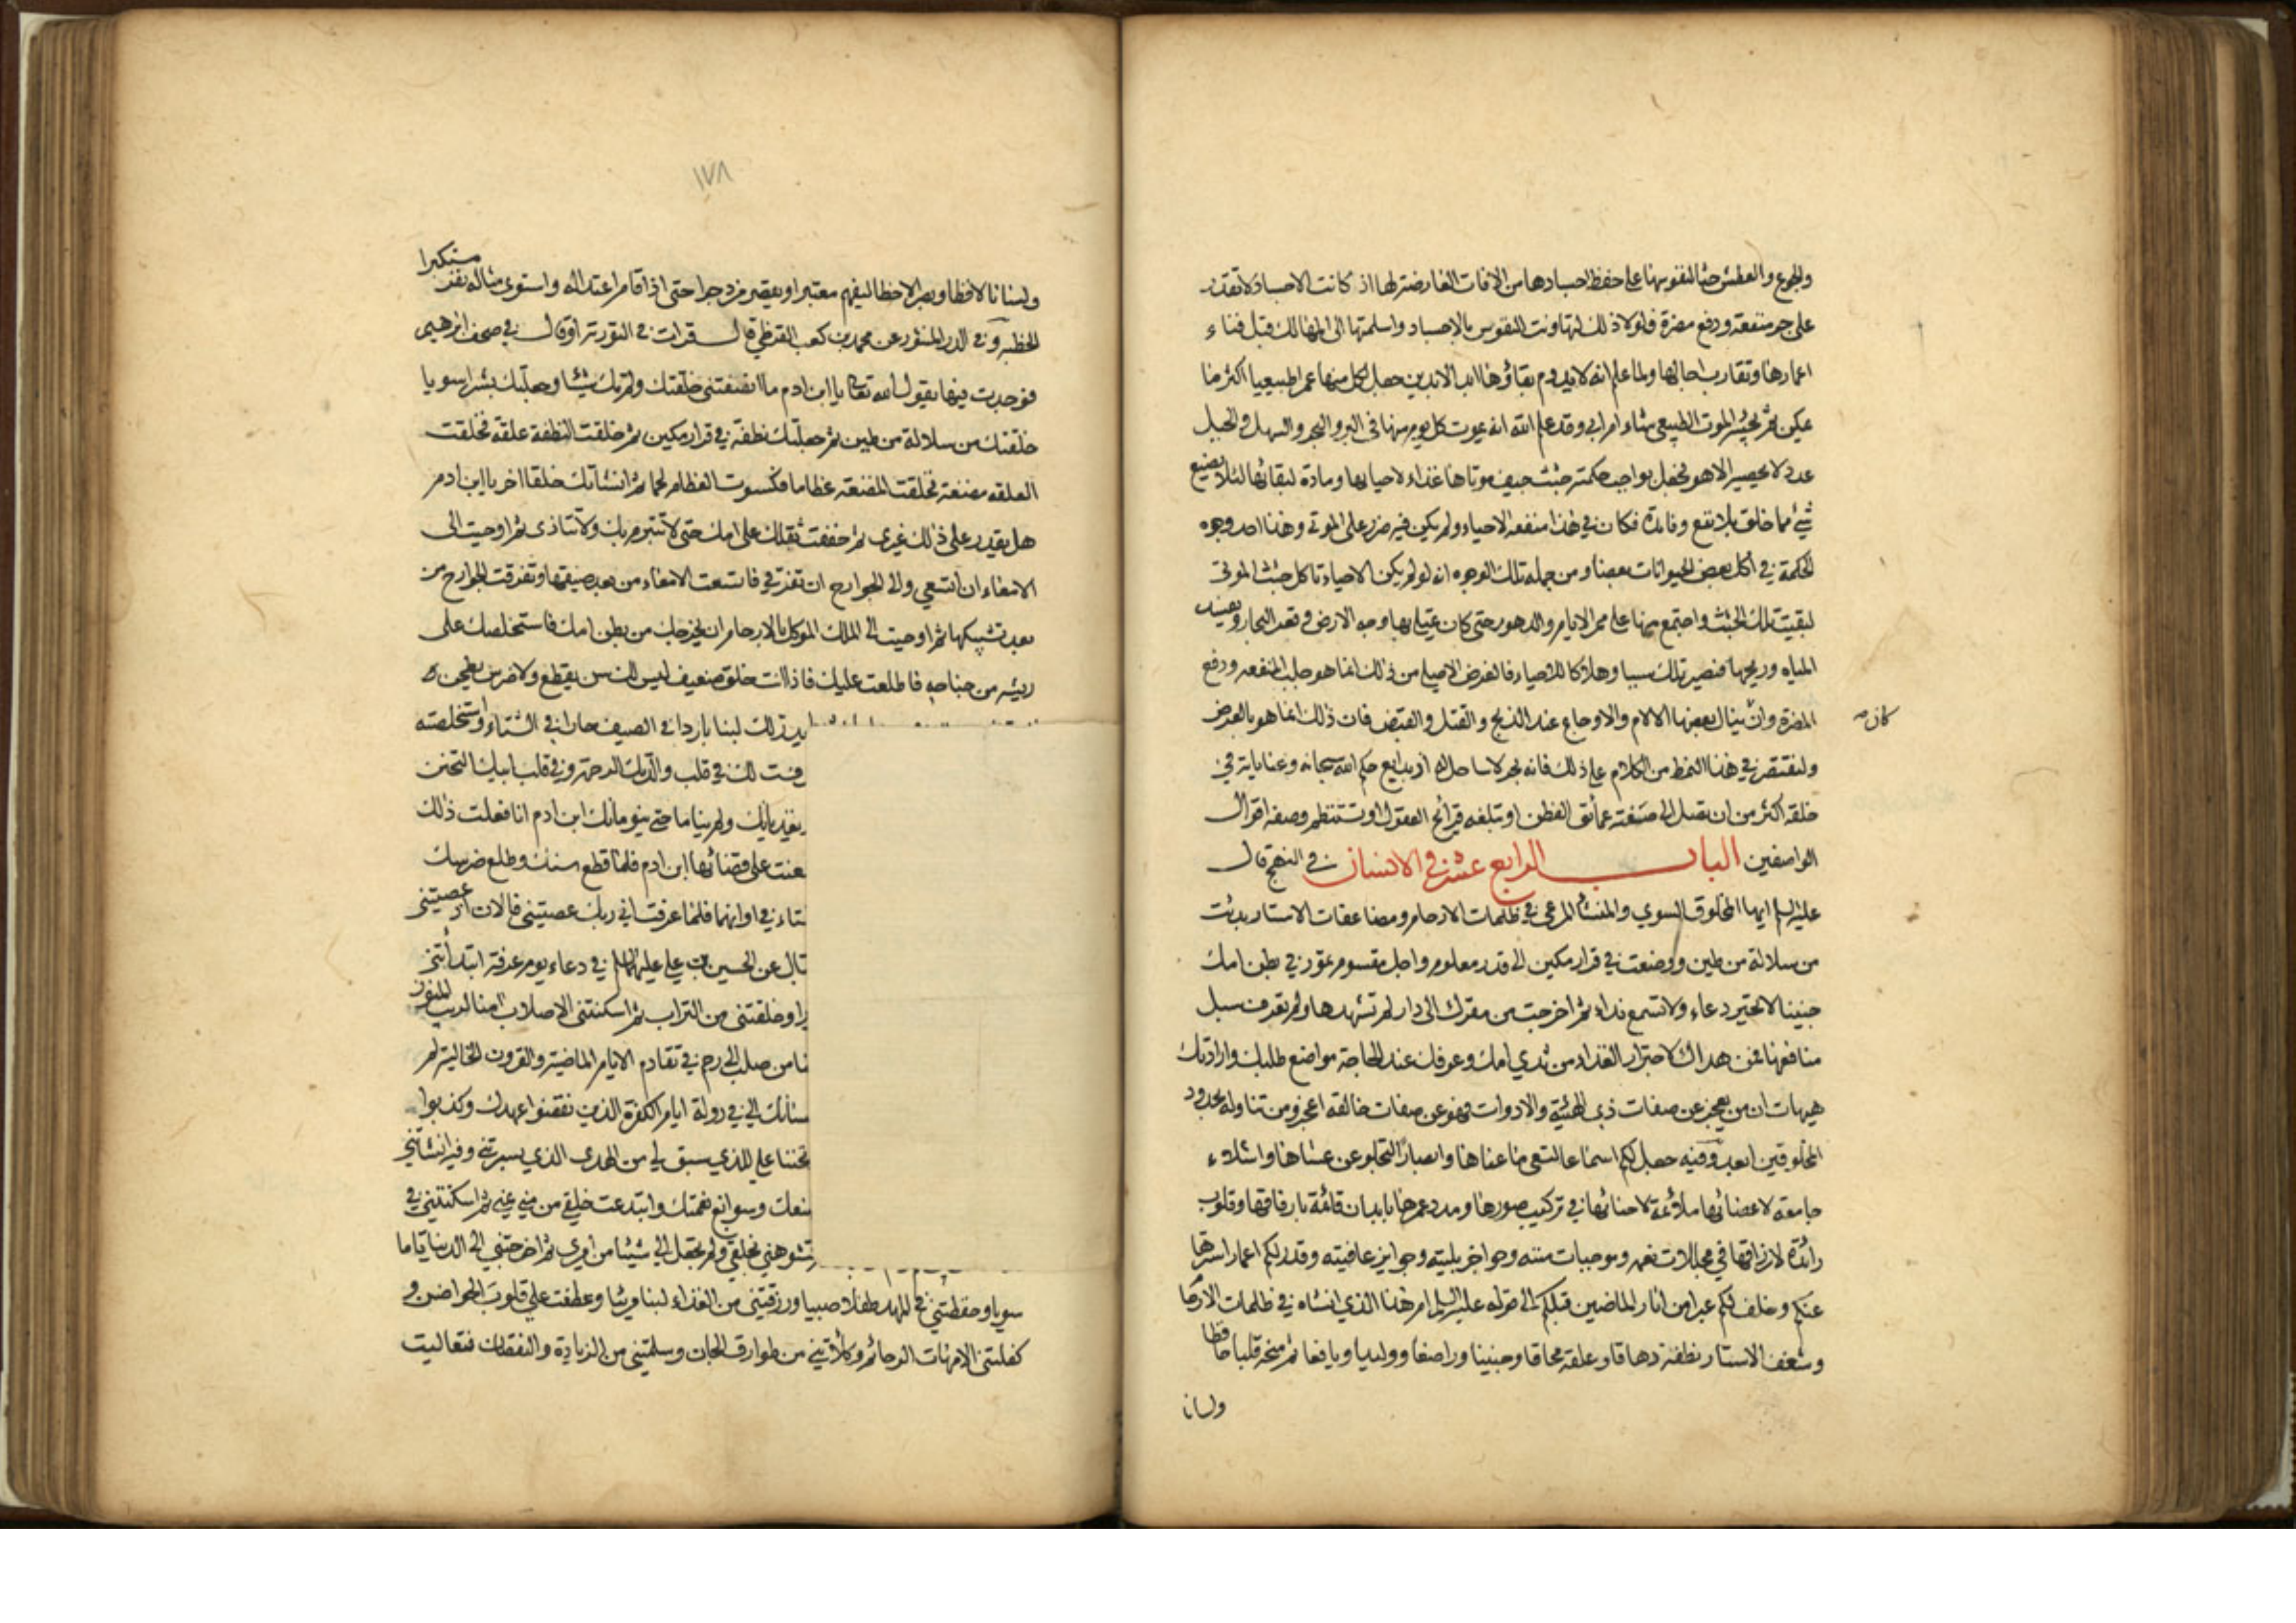 والجوع والعطش حثا لنفوسها على حفظ اجسادها من الآفات العارضة لها اذ كانت الاجساد لا تقدر
على جر منفعة ودفع مضرة فلولا ذلك لتهاونت النفوس بالاجساد واسلمتها الى المهالك قبل فناء
اعمارها وتقارب اجالها ولما علم انه لا يدوم بقاؤها ابد الابدين جعل لكل منها عمرا طبيعيا اكثر ما
يمكن ثم يجيئه الموت الطبيعي شاء ام ابى وقد علم الله انه يموت كل يوم منها في البر والبحر والسهل والجبل
عدد لا يحصيه الا هو فجعل بواجب حكمته جثث جيف موتاها غذاء لاحيائها ومادة لبقائها لئلا يضيع
شئ مما خلق بلا نفع وفائدة فكان في هذا منفعة الاحياء ولم يكن فيه ضرر على الموتى وهذا احد وجوه
الحكمة في اكل بعض الحيوانات بعضا ومن جملة تلك الوجوه انه لو لم يكن الاحياء تاكل جثث الموتى
لبقيت تلك الجثث واجتمع منها على ممر الايام والدهور حتى كان يمتلي بها وجه الارض وقعر البحار ويفسد
المياه وريحها فتصير تلك سببا وهلاكا للاحياء فالغرض الاصلي من ذلك انما هو جلب المنفعة ودفع
المضرة وان ينال بعضها الالام والاوجاع عند الذبح والقتل والقبض فان ذلك انما هو بالعرض
كان صه
ولنقتصر في هذا النمط من الكلام على ذلك فانه بحر لا ساحل له اذ بدايع حكم الله سبحانه وعناياته في
خلقه اكثر من ان تصل الى صفته عمائق الفطن او تبلغه قرائح العقول او تستنظم وصفه اقوال
الواصفين الباب الرابع عشر في الانسان في النهج قال
عليه السلم ايها المخلوق السوي والمنشأ المرعي في ظلمات الارحام ومضاعفات الاستار بدئت
من سلالة من طين ووضعت في قرار مكين الى قدر معلوم واجل مقسوم تمور في بطن امك
جنينا لا تحير دعاء ولا تسمع نداء ثم اخرجت من مقرك الى دار لم تشهدها ولم تعرف سبل
منافعها فمن هداك لاجترار الغذاء من ثدي امك وعرفك عند الحاجة مواضع طلبك وارادتك
هيهات ان من يعجز عن صفات ذي الهيئة والادوات فهو عن صفات خالقه اعجز ومن تناوله بحدود
المخلوقين ابعد وفيه جعل لكم اسماعا لتعي ما عناها وابصارا لتجلو عن عشاها واشلاء
جامعة لاعضائها ملائمة لاحنائها في تركيب صورها ومدد عمرها بابدان قائمة بارفاقها وقلوب
رائدة لارزاقها في مجللات نعمه وموجبات مننه وحواجز بليته وجوايز عافيته وقدر لكم اعمارا سترها
عنكم وخلف لكم عبرا من اثار الماضين قبلكم الى قوله عليه السلم ام هذا الذي انشاه في ظلمات الارحام
وشغف الاستار نطفة دهاقا وعلقة محاقا وجنينا وراضعا ووليدا ويافعا ثم منحه قلبا حافظا
ولسانا
١٧٨
ولسانا لافظا وبصرا لاحظا ليفهم معتبرا ويقصر مزدجرا حتى اذا قام اعتداله واستوى مثاله نفر مستكبرا
الخطبه وفي الدر المنثور عن محمد بن كعب القرظي قال قرات في التورية او قال في صحف ابرهيم
فوجدت فيها يقول الله تعالى يا ابن ادم ما انصفتني خلقتك ولم تك شيئا وجعلتك بشرا سويا
خلقتك من سلالة من طين ثم جعلتك نطفة في قرار مكين ثم خلقت النطفة علقة فخلقت
العلقة مضغة فخلقت المضغة عظاما فكسوت العظام لحما ثم انشاتك خلقا اخر يا ابن ادم
هل يقدر على ذلك غيري ثم خففت ثقلك على امك حتى لا تتبرم بك ولا تتاذى ثم اوحيت الى
الامعاء ان اتسعي والى الجوارح ان تفرقي فاتسعت الامعاء من بعد ضيقها وتفرقت الجوارح من
بعد تشبيكها ثم اوحيت الى الملك الموكل بالارحام ان يخرجك من بطن امك فاستخلصك على
ريشه من جناحه فاطلعت عليك فاذا انت خلق ضعيف ليس لك سن يقطع ولا ضرس يطحن
يدر لك لبنا باردا في الصيف حارا في الشتاء واستخلصته
فت لك في قلب والدتك الرحمة وفي قلب ابيك التحنن
يغذيانك ولم يناما حتى ينومانك ابن ادم انا فعلت ذلك
عنت على قضائها ابن ادم فلما قطع سنك وطلع ضرسك
تاء في اوانهما فلما عرفت اني ربك عصيتني فالان اذ عصيتني
تال عن الحسين بن علي عليهما السلم في دعاء يوم عرفة ابتدأتني
را وخلقتني من التراب ثم اسكنتني الاصلاب امنا لريب المنون
نا من صلب الى رحم في تقادم الايام الماضية والقرون الخالية لم
سانك الي في دولة ايام الكفرة الذين نقضوا عهدك وكذبوا
تحننا علي للذي سبق لي من الهدى الذي يسرتني وفيه انشأتني
صنعك وسوابغ نعمتك وابتدعت خلقي من مني يمنى ثم اسكنتني في
تشوهني بخلقي ولم تجعل الي شيئا من امري ثم اخرجتني الى الدنيا تاما
سويا وحفظتني في المهد طفلا صبيا ورزقتني من الغذاء لبنا مريا وعطفت علي قلوب الحواضن و
كفلتني الامهات الرحائم وكلأتني من طوارق الجان وسلمتني من الزيادة والنقصان فتعاليت